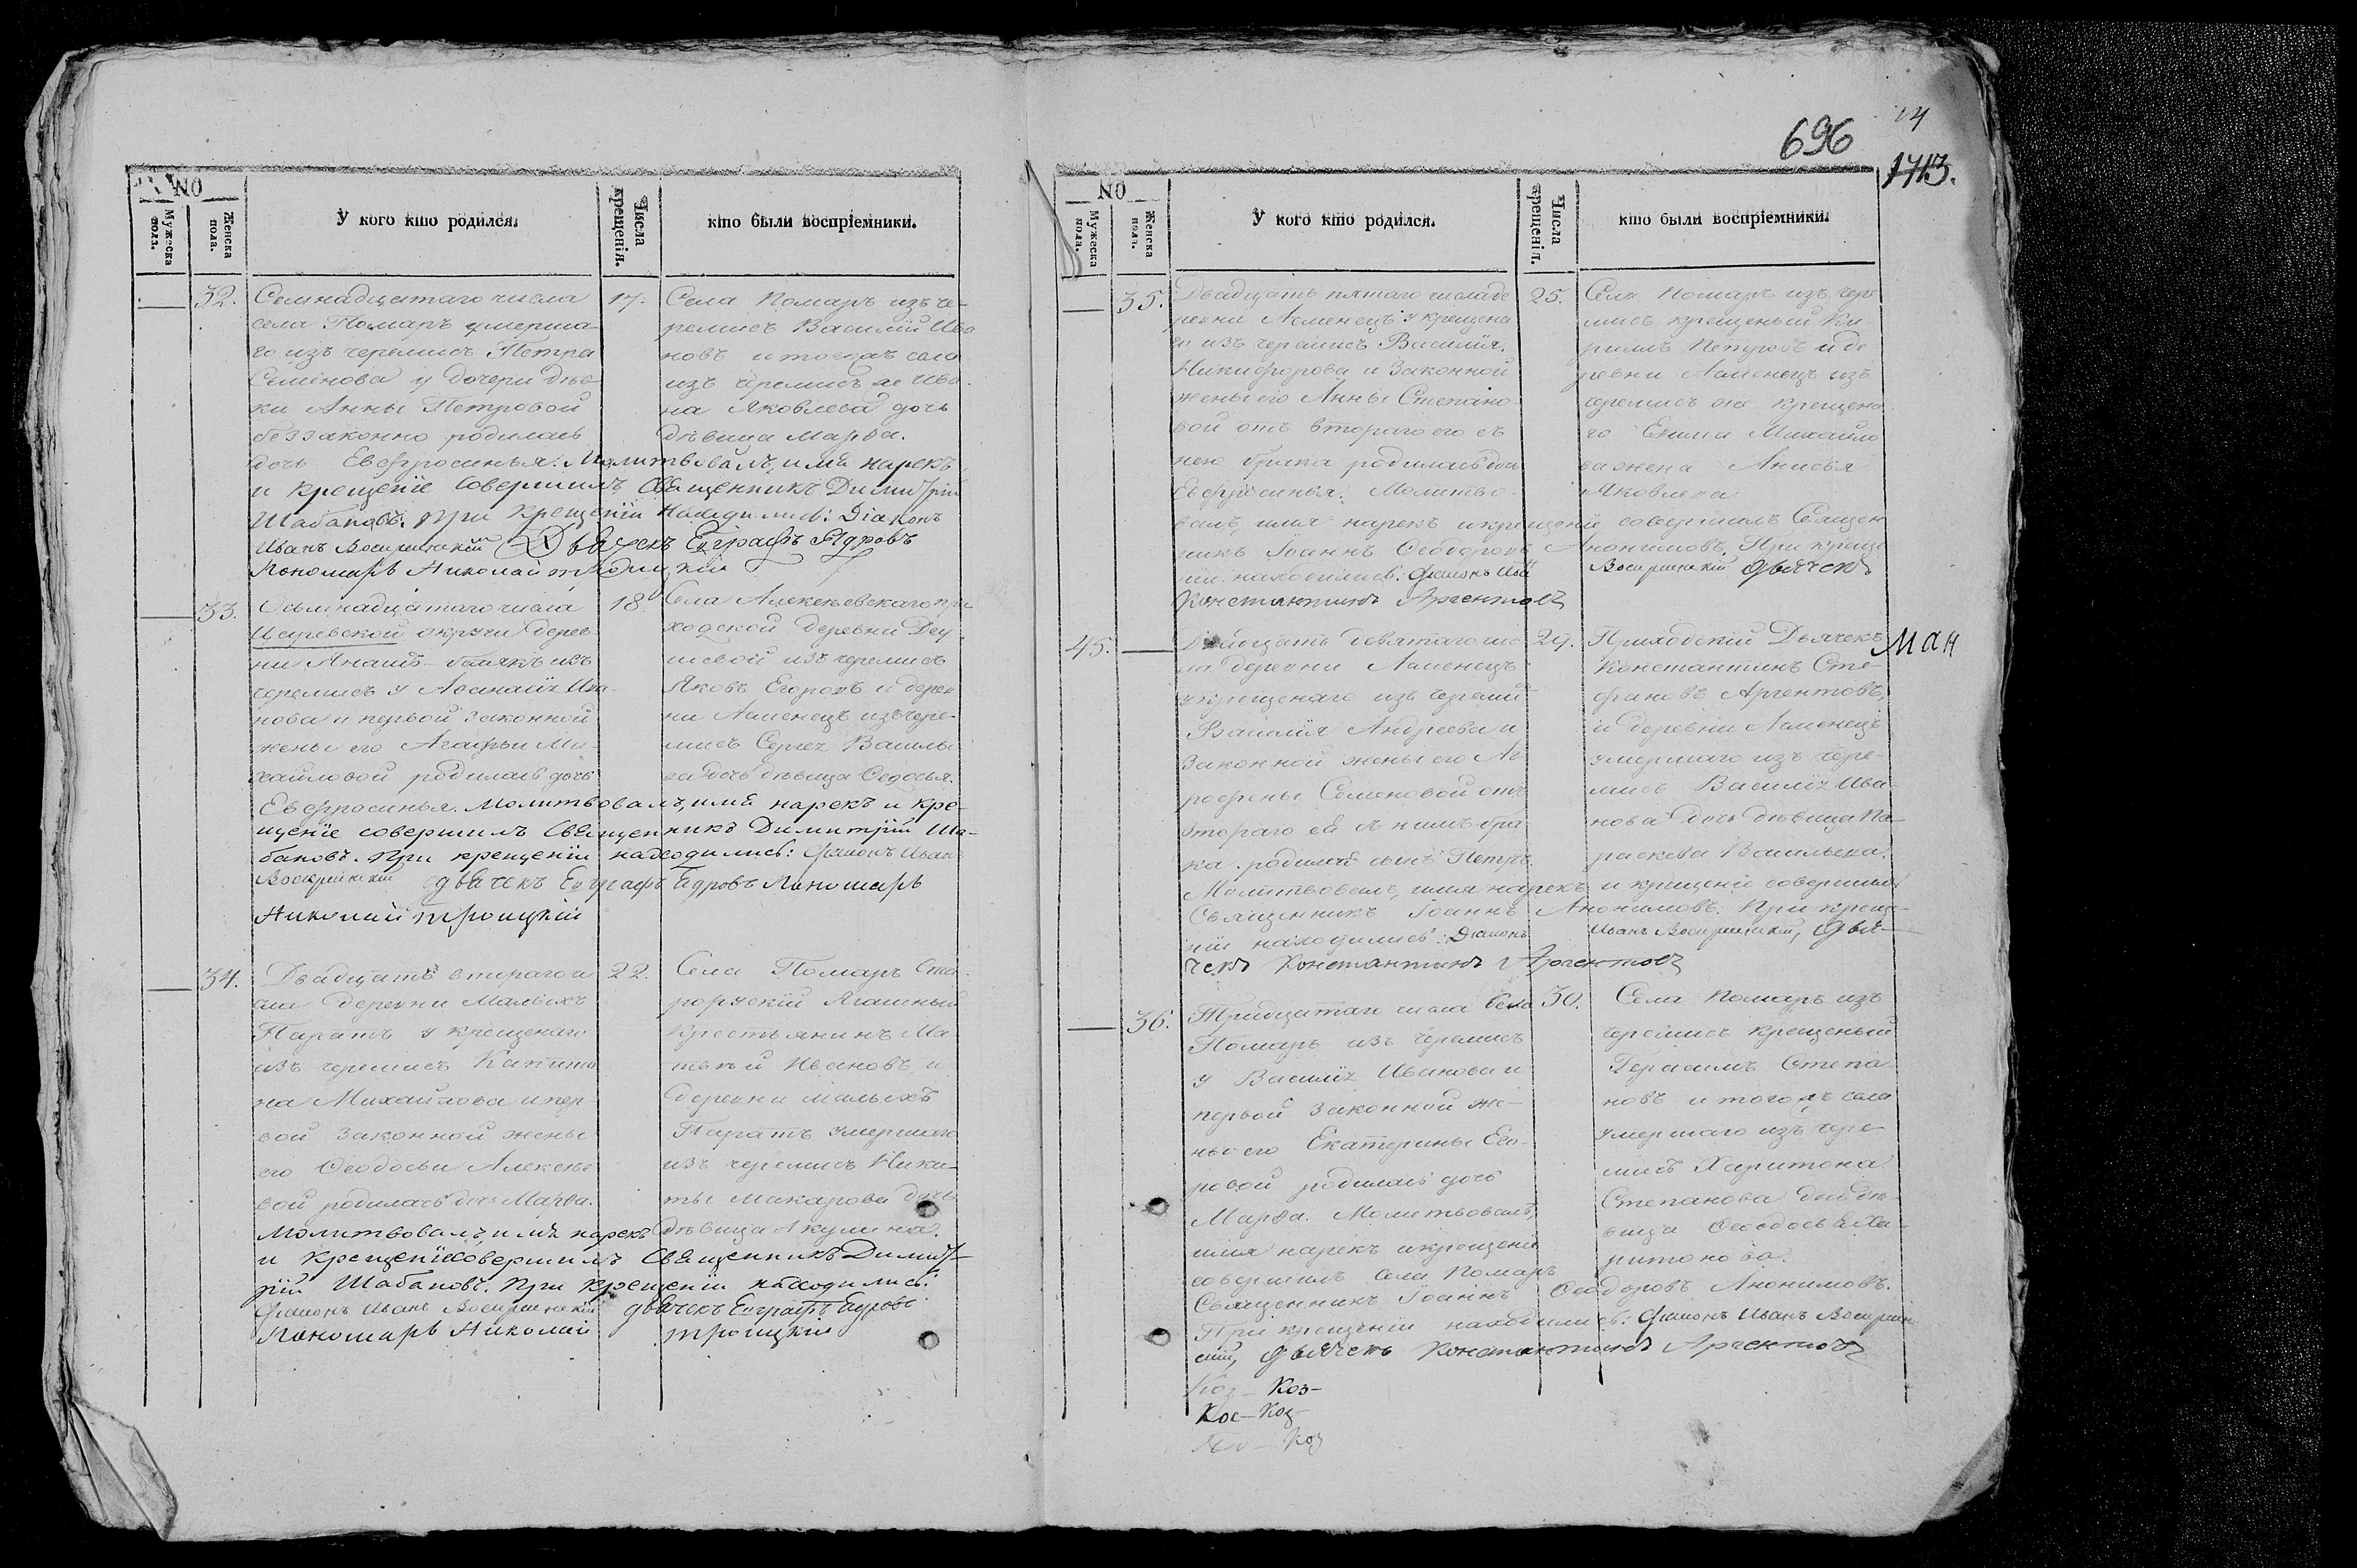 NO
Мужеска пола.
Женска пола.
У кого кто родился.
Числа крещенія.
кто были воспріемники.
32.
Семнадцатаго числа
села Помаръ умерша-
го изъ черемисъ Петра
Семенова у дочери дѣв-
ки Анны Петровой
беззаконно родилась
дочь Евфросинья. Молитвовалъ, имя нарекъ
и крещеніе совершилъ Священникъ Димитрій
Шабановъ. При крещеніи находились: Діаконъ
Иванъ Дьячекъ Евграфъ
Пономарь Николай Троицкій
17.
Села Помаръ изъ че-
ремисъ Василій Ива
новъ и тогожъ села
изъ черемисъ же Ива-
на Яковлева дочь
дѣвица Марѳа.
33.
Осьмнадцатаго числа
округи дерев
ни изъ
черемисъ у Аѳанасія Ива-
нова и первой законной
жены его Агафьи Ми-
хайловой родилась дочь
Евфросинья. Молитвовалъ, имя нарекъ и кре-
щеніе совершилъ Священникъ Димитрій Ша-
бановъ. При крещеніи находились: Діаконъ Иванъ
дьячекъ Евграфъ Пономарь
Николай Троицкій
18.
Села Алексѣевскаго при
ходской деревни
изъ черемисъ
Яковъ Егоровъ и дерев
ни изъ чере-
мисъ Сергея Василье
ва дочь дѣвица Ѳедосья.
34.
Двадцать втораго чи
сла деревни Малыхъ
Паратъ у крещенаго
изъ черемисъ Капито
на Михайлова и пер
вой законной жены
его Ѳеодосьи Алексѣе
вой родилась дочь Марѳа.
Молитвовалъ, имя нарекъ
и крещеніе совершилъ Священникъ Димит-
рій Шабановъ. При крещеніи находились:
Діаконъ Иванъ дьячекъ Евграфъ
Пономарь Николай Троицкій
22.
Села Помаръ Ста-
рорускій Ясашный
крестьянинъ Ма
твѣй Ивановъ, и
деревни Малыхъ
Паратъ умершаго
изъ черемисъ Ники-
ты Макарова дочь
дѣвица Акулина.
696
1713.
NO
Мужеска пола.
Женска пола.
У кого кто родился.
Числа крещенія.
кто были воспріемники.
35.
Двадцать пятаго числа де
ревни у крещена
го изъ черемисъ Василія
Никифорова и законной
жены его Анны Степано-
вой отъ втораго его съ
нею брака родилась дочь
Евфросинья. Молитво-
валъ, имя нарекъ и крещеніе совершилъ Священ
никъ Іоаннъ Ѳеодоровъ Анонимовъ. При креще
ніи находились: Діаконъ Иванъ дьячекъ
Константинъ Аргентовъ
25.
Села Помаръ изъ чере
мисъ крещеный Ки
риллъ Петровъ и де
ревни изъ
черемисъ же крещена
го Ефима Михайло
ва жена Анисья
Яковлева
45.
Двадцать девятаго чис
ла деревни
у крещенаго изъ череми
Василія Андреева и
законной жены его
Семеновой отъ
втораго ея съ нимъ бра
ка родился сынъ Петръ.
Молитвовалъ, имя нарекъ и крещеніе совершилъ
Священникъ Іоаннъ Анонимовъ. При креще-
ніи находились: Діаконъ Иванъ дья-
чекъ Константинъ Аргентовъ
29.
Приходскій Дьячекъ
Константинъ Сте-
фановъ Аргентовъ,
и деревни
умершаго изъ чере-
мисъ Василія Ива-
нова дочь дѣвица Па-
раскева Васильева.
Ман
36.
Тридцатаго числа села
Помаръ изъ черемисъ
у Василія Иванова и
первой законной же-
ны его Екатерины Его-
ровой родилась дочь
Марѳа. Молитвовалъ,
имя нарекъ и крещеніе
совершилъ села Помаръ
Священникъ Іоаннъ Ѳеодоровъ Анонимовъ.
При крещеніи находились: Діаконъ Иванъ
дьячекъ Константинъ Аргентовъ
30.
Села Помаръ изъ
черемисъ крещеный
Герасимъ Степа
новъ и тогожъ села
умершаго изъ чере
мисъ Харитона
Степанова дочь дѣ-
вица Ѳеодосья Ха-
ритонова.
Коз-
Кос- Коз-
Коз